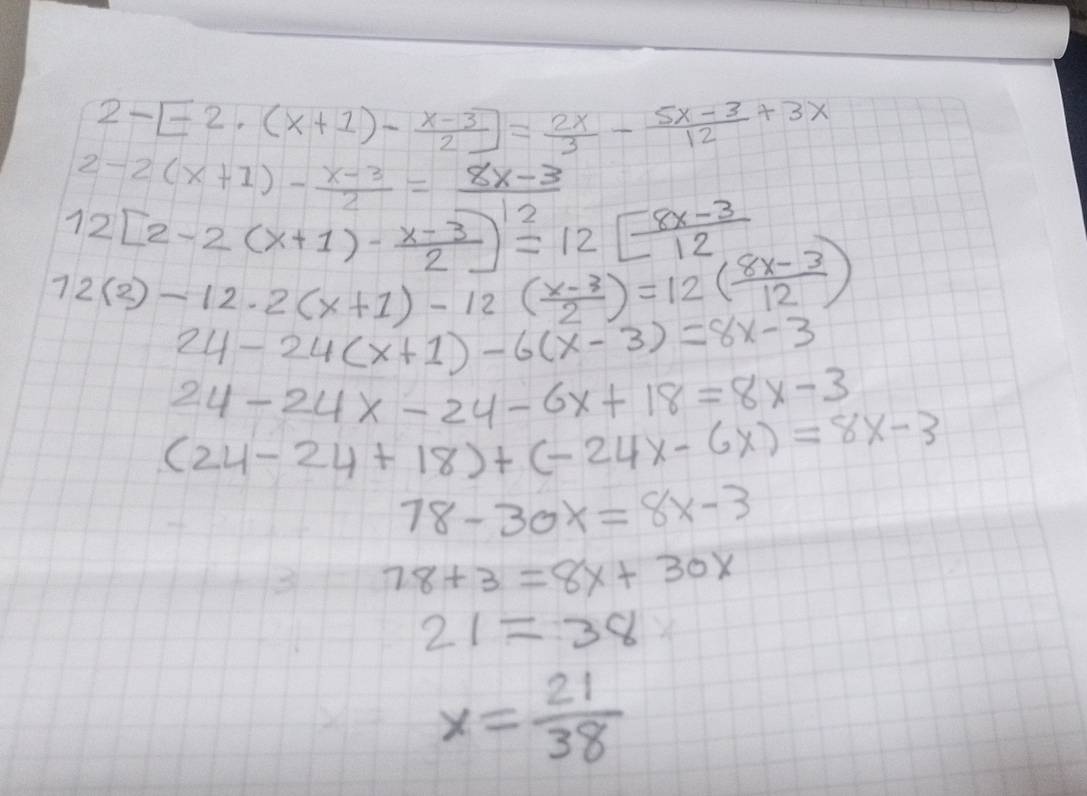 2-[-2·(x+1)-\frac{x-3}{2}]=\frac{2x}{3}-\frac{5x-3}{12}+3x
2-2(x+1)-\frac{x-3}{2}=\frac{8x-3}{12}
12[2-2(x+1)-\frac{x-3}{2}]=12[\frac{8x-3}{12}
12(2)-12·2(x+1)-12(\frac{x-3}{2})=12(\frac{8x-3}{12})
24-24(x+1)-6(x-3)=8x-3
24-24x-24-6x+18=8x-3
(24-24+18)+(-24x-6x)=8x-3
18-30x=8x-3
18+3=8x+30x
21=38
x=\frac{21}{38}